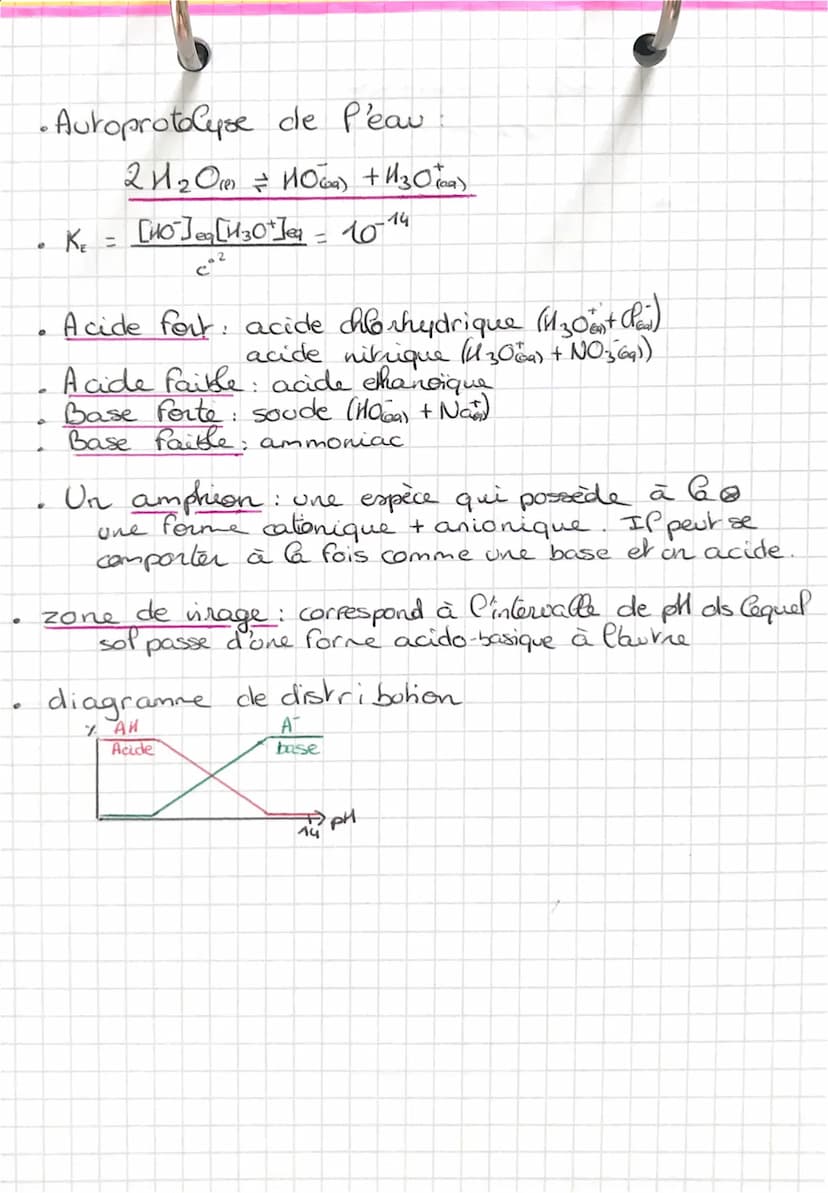 • Autoprotolyse de l'eau :
2 H₂O(l) ⇌ HO⁻(aq) + H₃O⁺(aq)
• KE = [HO⁻]eq[H₃O⁺]eq / c°² = 10⁻¹⁴
• Acide fort : acide chlorhydrique (H₃O⁺(aq) + Cl⁻(aq))
acide nitrique (H₃O⁺(aq) + NO₃⁻(aq))
• Acide faible : acide ethanoïque
• Base forte : soude (HO⁻(aq) + Na⁺(aq))
• Base faible : ammoniac
• Un amphion : une espèce qui possède à la
une forme cationique + anionique. Il peut se
comporter à la fois comme une base et un acide.
• zone de virage : correspond à l'intervalle de pH ds lequel
sol passe d'une forme acido-basique à l'autre
• diagramme de distribution
% AH A⁻
Acide base
14 pH